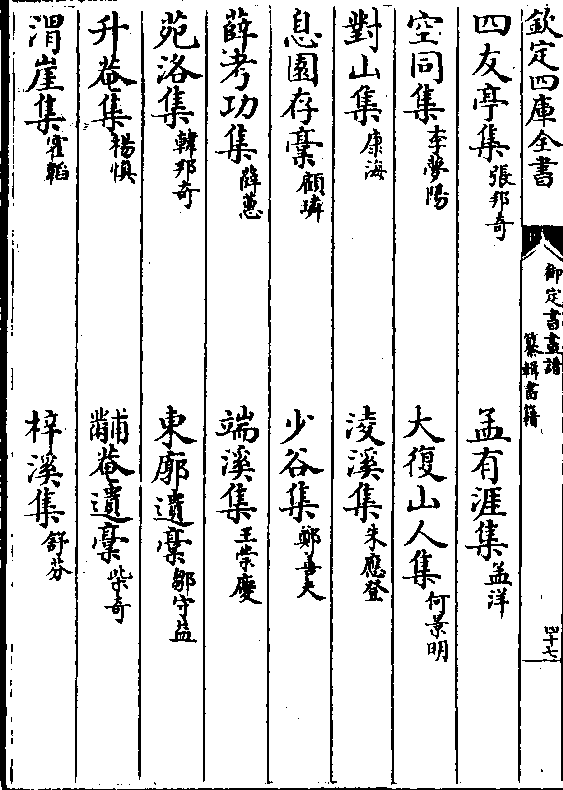 欽定四庫全書
御定書畫譜
纂輯書籍
四十七
四友亭集張邦奇
孟有涯集孟洋
空同集李夢陽
大復山人集何景明
對山集康海
淩溪集朱應登
息園存稾顧璘
少谷集鄭善夫
薛考功集薛蕙
端溪集王崇慶
苑洛集韓邦奇
東廓遺稾鄒守益
升菴集楊慎
黼菴遺稾柴奇
渭崖集霍韜
梓溪集舒芬